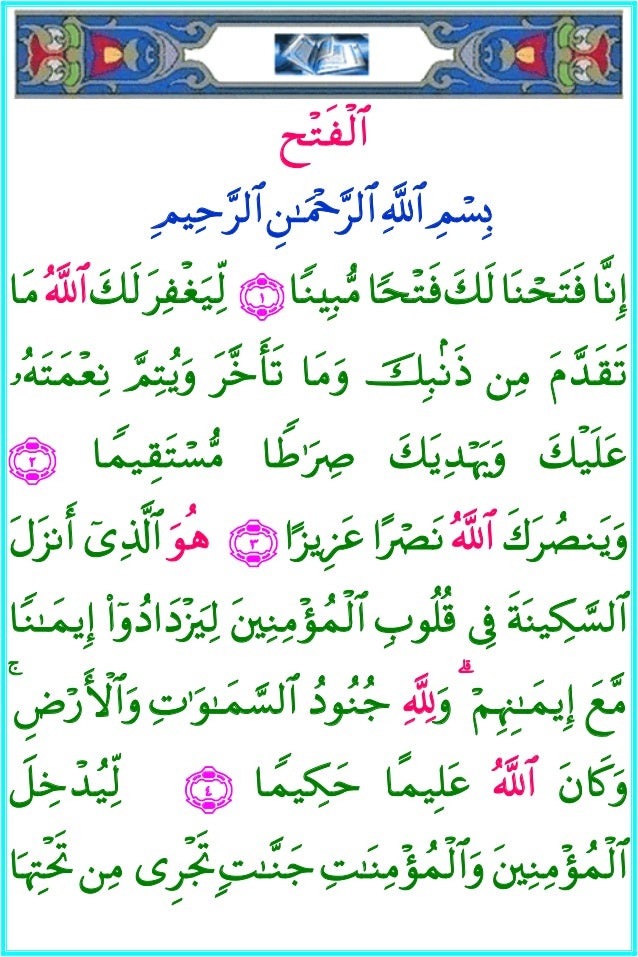 ٱلۡفَتۡح
بِسۡمِ ٱللَّهِ ٱلرَّحۡمَـٰنِ ٱلرَّحِيمِ
إِنَّا فَتَحۡنَا لَكَ فَتۡحًا مُّبِينًا ١ لِّيَغۡفِرَ لَكَ ٱللَّهُ مَا
تَقَدَّمَ مِن ذَنۢبِكَ وَمَا تَأَخَّرَ وَيُتِمَّ نِعۡمَتَهُۥ
عَلَيۡكَ وَيَهۡدِيَكَ صِرَٰطًا مُّسۡتَقِيمًا ٢
وَيَنصُرَكَ ٱللَّهُ نَصۡرًا عَزِيزًا ٣ هُوَ ٱلَّذِىٓ أَنزَلَ
ٱلسَّكِينَةَ فِى قُلُوبِ ٱلۡمُؤۡمِنِينَ لِيَزۡدَادُوٓاْ إِيمَـٰنًا
مَّعَ إِيمَـٰنِہِمۡ‌ۗ وَلِلَّهِ جُنُودُ ٱلسَّمَـٰوَٰتِ وَٱلۡأَرۡضِ‌ۚ
وَكَانَ ٱللَّهُ عَلِيمًا حَكِيمًا ٤ لِّيُدۡخِلَ
ٱلۡمُؤۡمِنِينَ وَٱلۡمُؤۡمِنَـٰتِ جَنَّـٰتٍ تَجۡرِى مِن تَحۡتِہَا